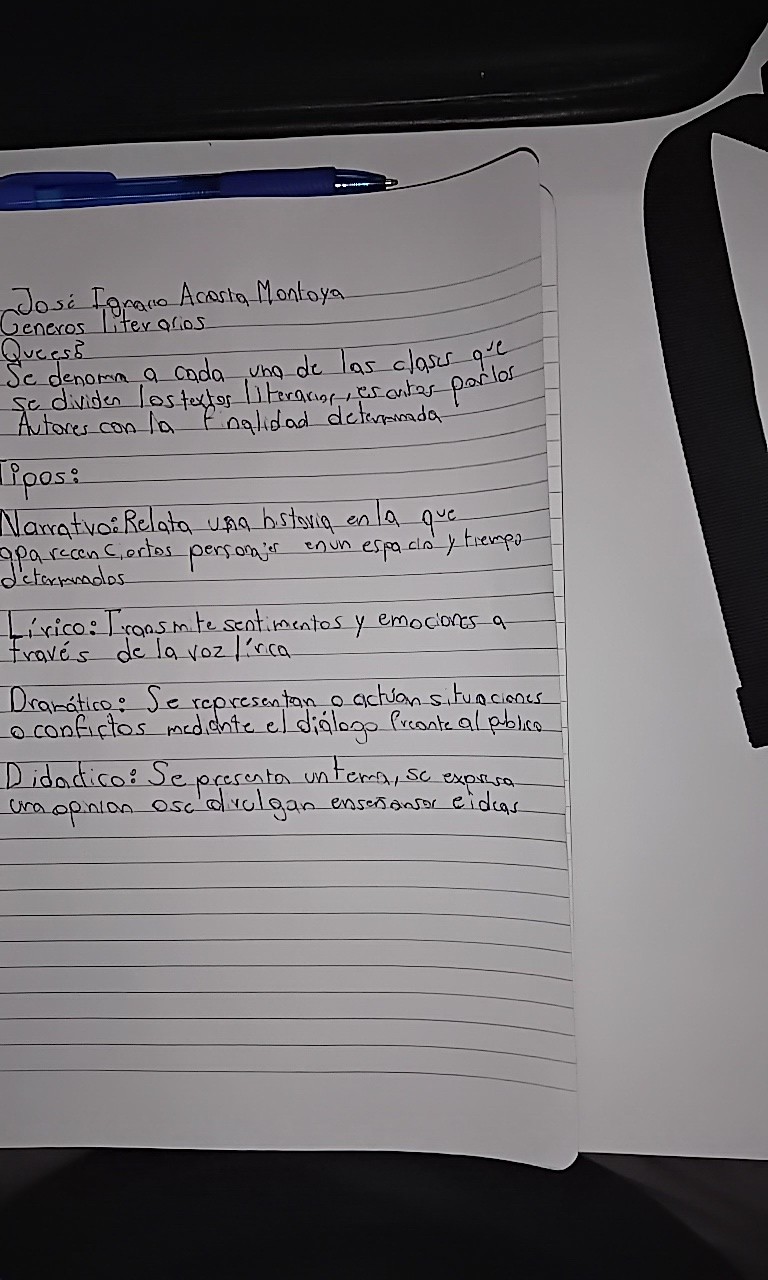 José Ignacio Acosta Montoya
Generos literarios
Que es?
Se denomin a cada una de las clases que
se dividen los textos literarios, escritas por los
Autores con la finalidad determinada
Tipos:
Narrativo: Relata una historia en la que
aparecen ciertos personajes en un espacio y tiempo
determinados
Lírico: Transmite sentimentos y emociones a
través de la voz lírica
Dramático: Se representan o actúan situaciones
o conflictos mediante el diálogo freonte al público
Didactico: Se presenta un tema, se expresa
una opinion o se divulgan enseñansas e ideas